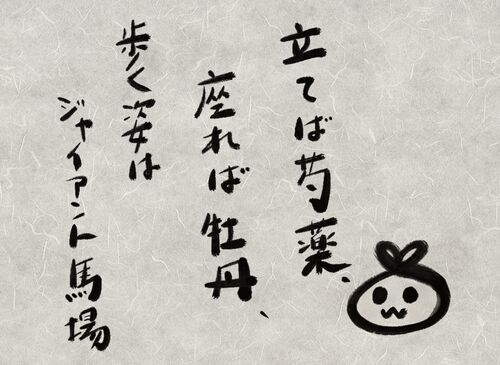 立てば芍薬、
座れば牡丹、
歩く姿は
ジャイアント馬場